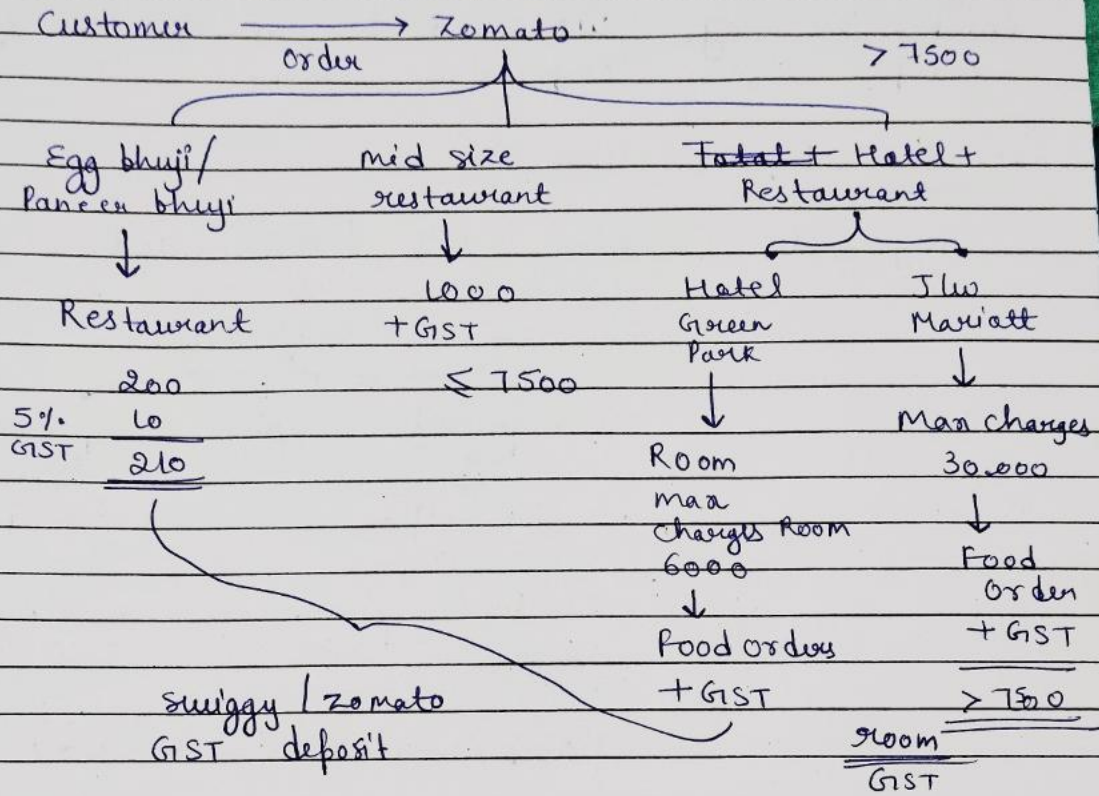 Customer → Zomato
order
> 7500
Egg bhuji/
Paneer bhuji
↓
Restaurant
200
5% 10
GST 210
mid size
restaurant
↓
1000
+ GST
≤ 7500
Total + Hotel +
Restaurant
Hotel
Green
Park
↓
Room
max
charges Room
6000
↓
Food orders
+ GST
JW
Mariatt
↓
Max charges
30,000
↓
Food
Order
+ GST
> 7500
room
GST
swiggy / zomato
GST deposit